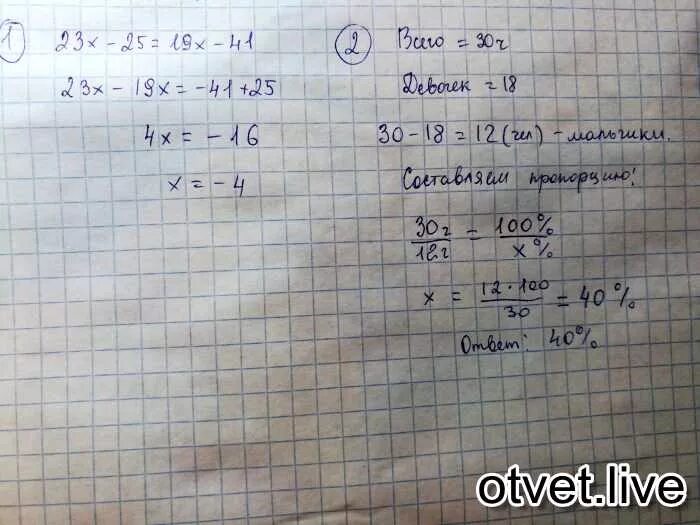 1
23x - 25 = 19x - 41
23x - 19x = -41 + 25
4x = -16
x = -4
2
Всего = 30ч
Девочек = 18
30 - 18 = 12 (чел) - мальчики.
Составляем пропорцию!
30ч/12ч = 100%/x%
x = 12·100/30 = 40%
Ответ: 40%
otvet.live